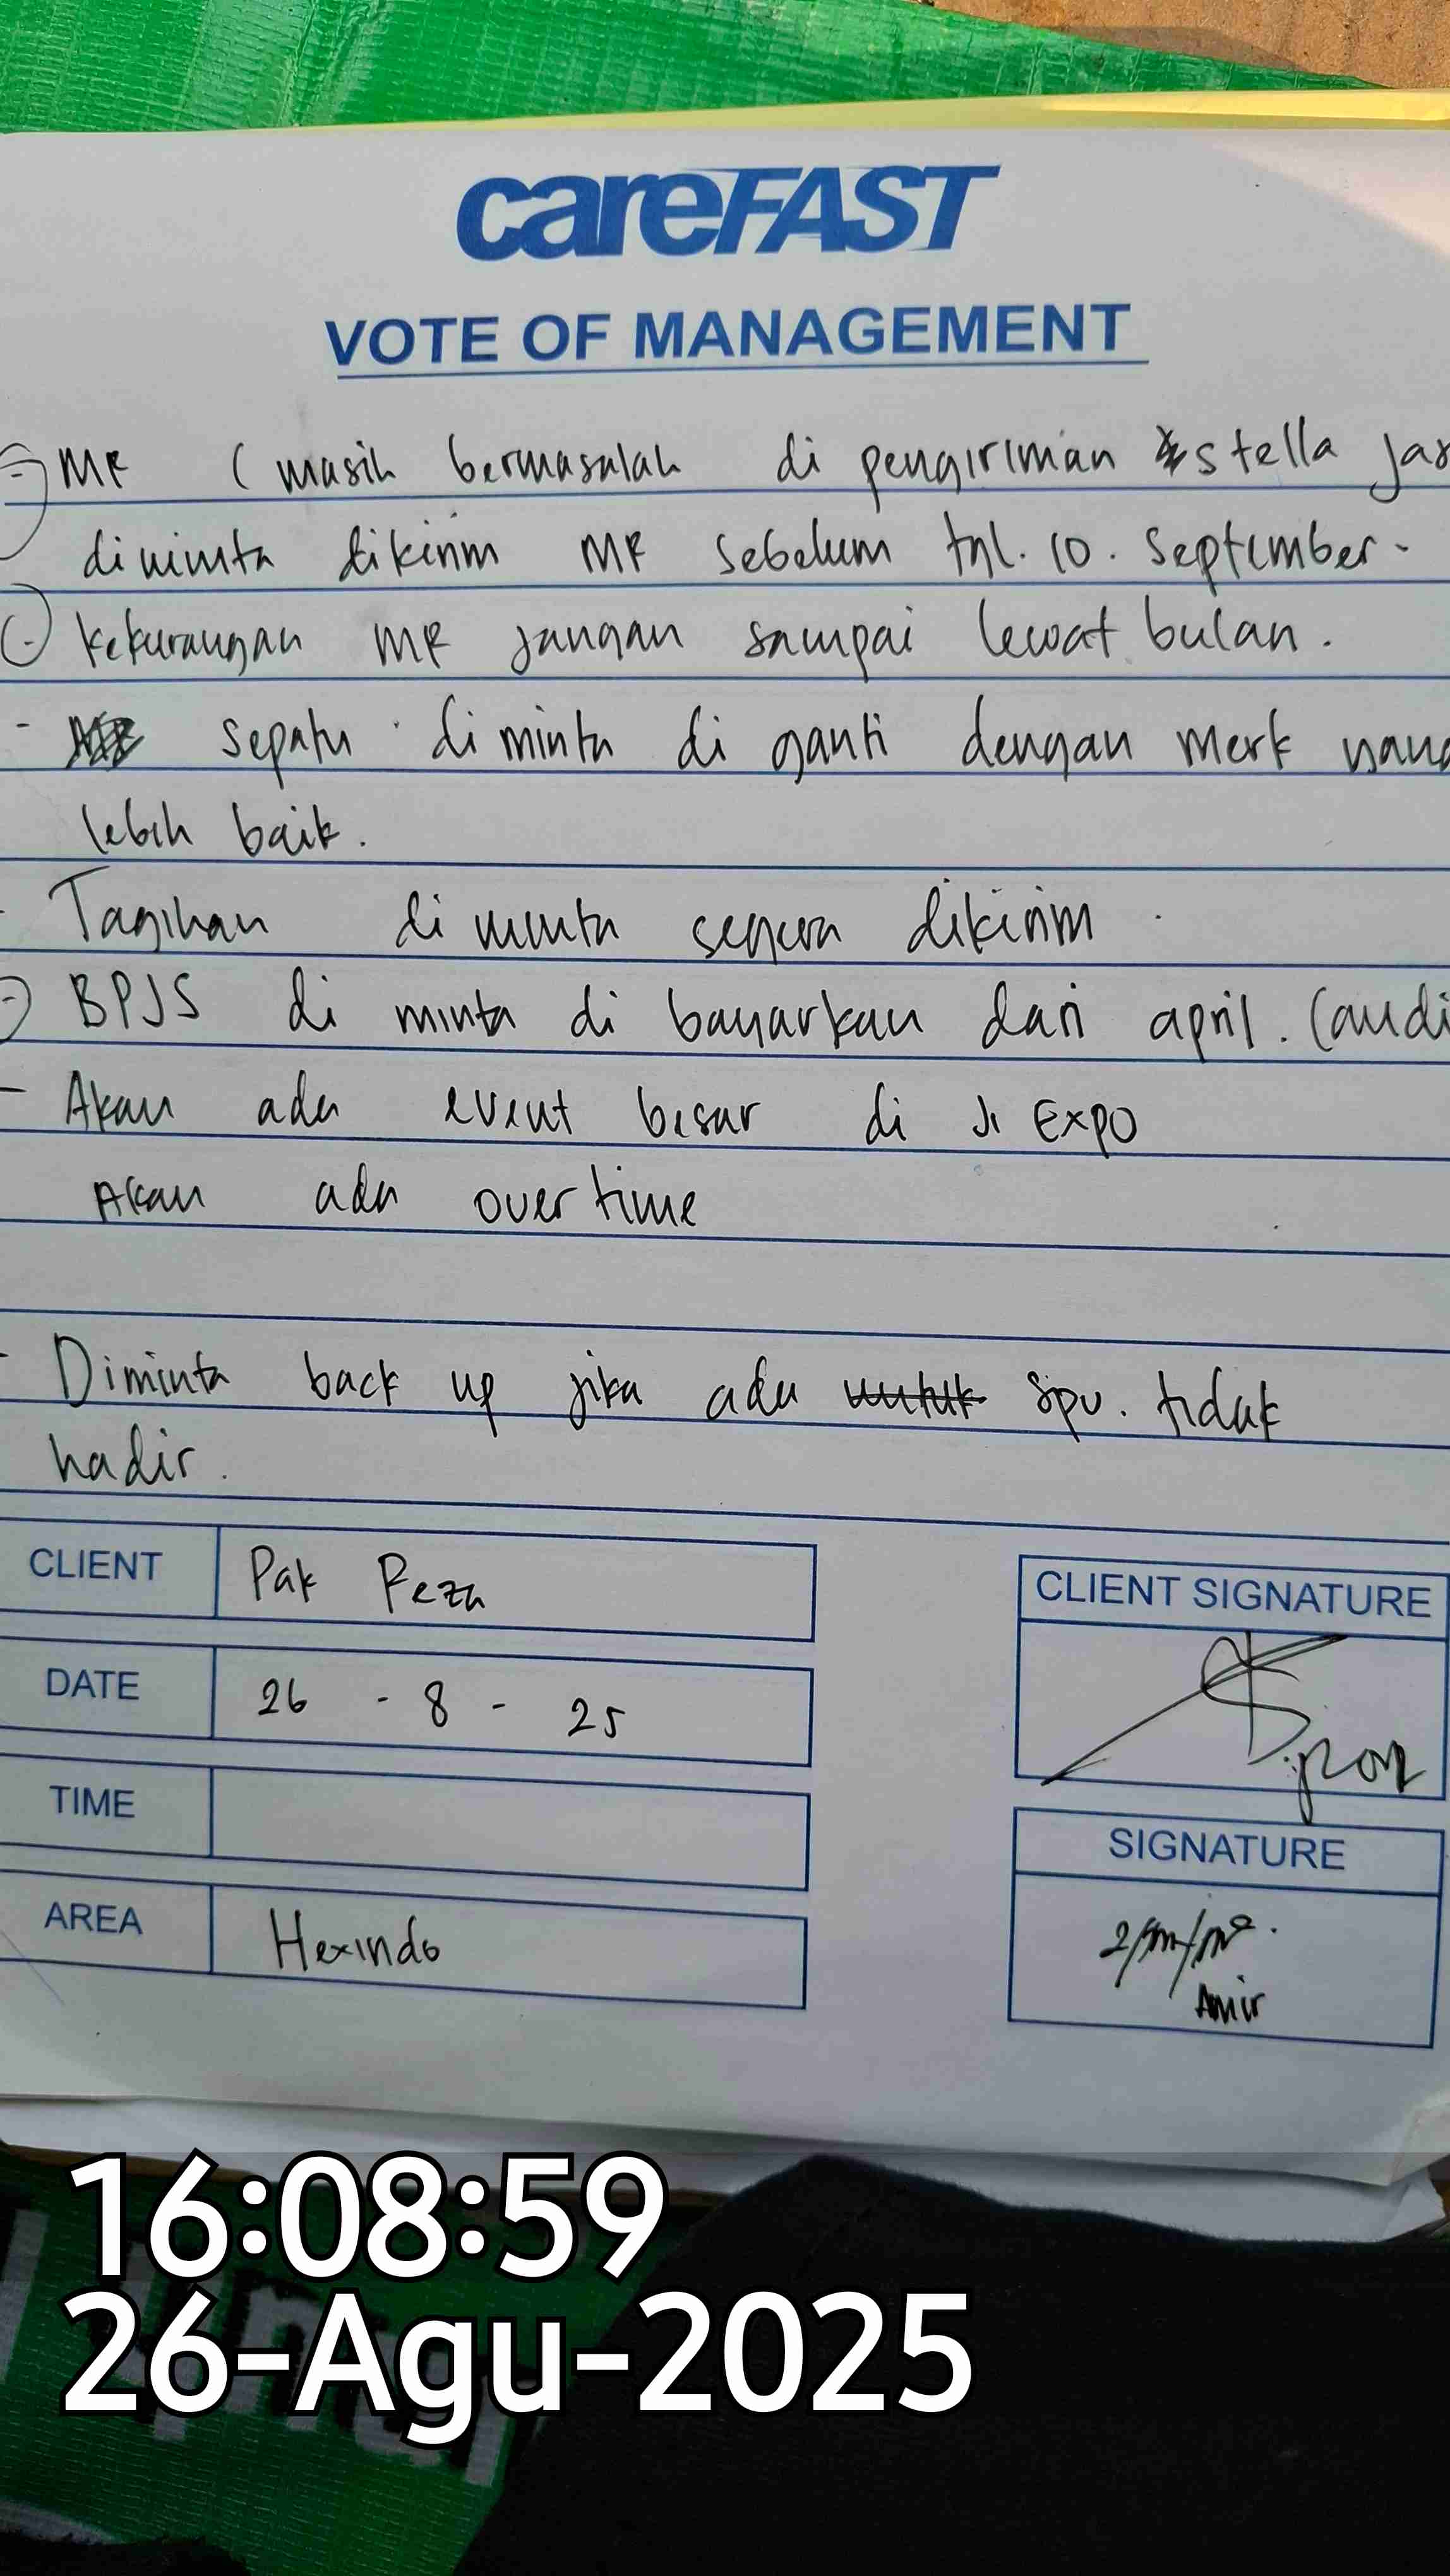 careFAST
VOTE OF MANAGEMENT
MR ( masih bermasalah di pengiriman stella jar
diminta dikirim MR sebelum tgl. 10. September.
kekurangan MR jangan sampai lewat bulan.
- sepatu diminta di ganti dengan merk yang
lebih baik.
- Tagihan di minta segera dikirim
BPJS di minta di bayarkan dari april. (audi
- Akan ada event besar di JI EXPO
Akan ada over time
- Diminta back up jika ada untuk spv. tidak
hadir.
CLIENT Pak Reza
DATE 26 - 8 - 25
TIME
AREA Hexindo
CLIENT SIGNATURE
SIGNATURE
Amir
16:08:59
26-Agu-2025